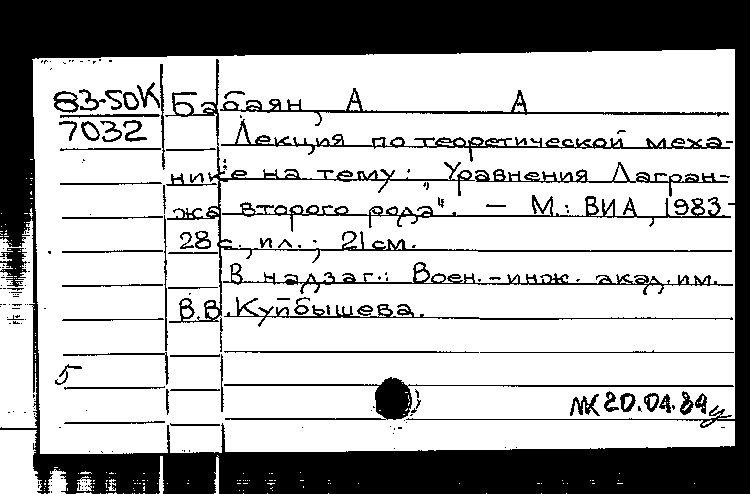 83-50К Бабаян, А А
7032 Лекция по теоретической меха-
нике на тему: „Уравнения Лагран-
жа второго рода“. — М.: ВИА, 1983.-
28 с., ил.; 21 см.
В надзаг.: Воен.-инж. акад. им.
В.В. Куйбышева.
5
20.04.84